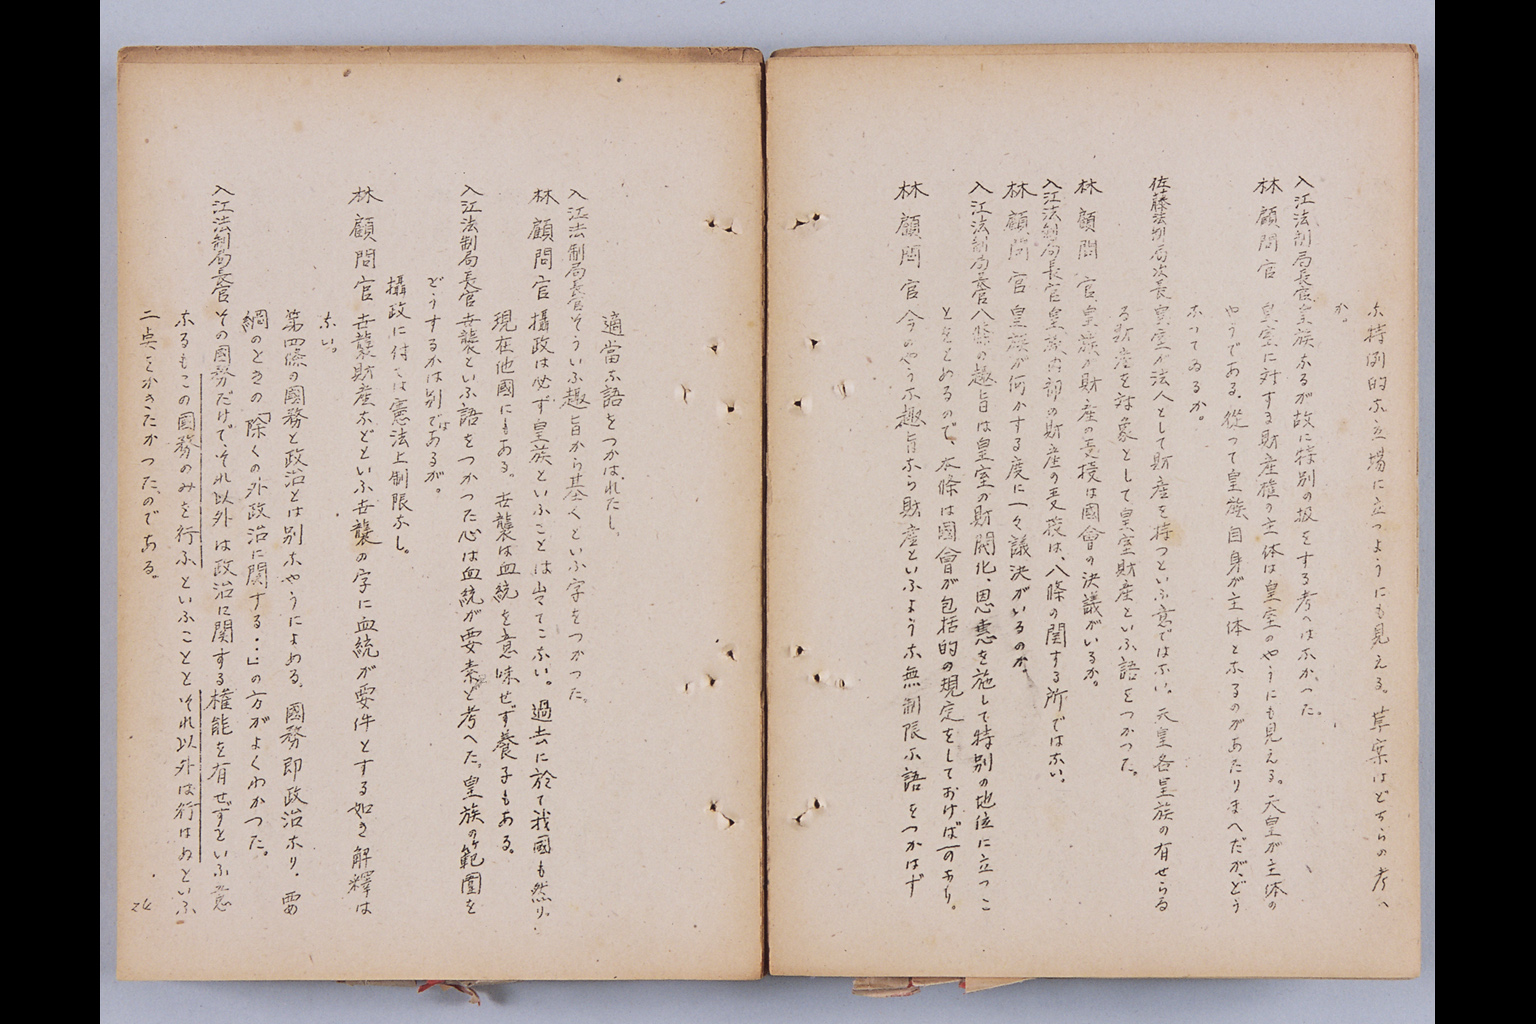 な特例的な立場に立つようにも見える。草案はどちらの考へ
か。
入江法制局長官 皇族なるが故に特別の扱をする考へはなかった。
林顧問官 皇室に対する財産権の主体は皇室のやうにも見える。天皇が主体の
やうである。従つて皇族自身が主体となるのがあたりまへだが、どう
なつてゐるか。
佐藤法制局次長 皇室が法人として財産を持つといふ意ではない。天皇各皇族の有せらる
る財産を対象として皇室財産といふ語をつかつた。
林顧問官 皇族が財産の受授は國會の決議がいるか。
入江法制局長官 皇族内部の財産の受授は、八條の関する所ではない。
林顧問官 皇族が何かする度に一々議決がいるのか。
入江法制局長官 八條の趣旨は皇室の財閥化、恩恵を施して特別の地位に立つこ
とをとめるので、本條は國會が包括的の規定をしておけば可なり。
林顧問官 今のやうな趣旨なら財産といふような無制限な語をつかはず
適當な語をつかはれたし。
入江法制局長官 そういふ趣旨から基くといふ字をつかつた。
林顧問官 攝政は必ず皇族といふことは出てこない。過去に於て我國も然り。
現在他國にもある。世襲は血統を意味せず養子もある。
入江法制局長官 世襲といふ語をつかつた心は血統が要素と考へた。皇族の範囲を
どうするかは別ではあるが。
攝政に付ては憲法上制限なし。
林顧問官 世襲財産などといふ世襲の字に血統が要件とする如き解釋は
ない。
第四條の國務と政治とは別なやうによめる。國務即政治なり。要
綱のときの「除くの外政治に関する…」の方がよくわかつた。
入江法制局長官 その國務だけで、それ以外は政治に関する権能を有せずといふ意
なるもこの國務のみを行ふといふことと、それ以外は行はぬといふ
二点をかきたかつたのである。
24